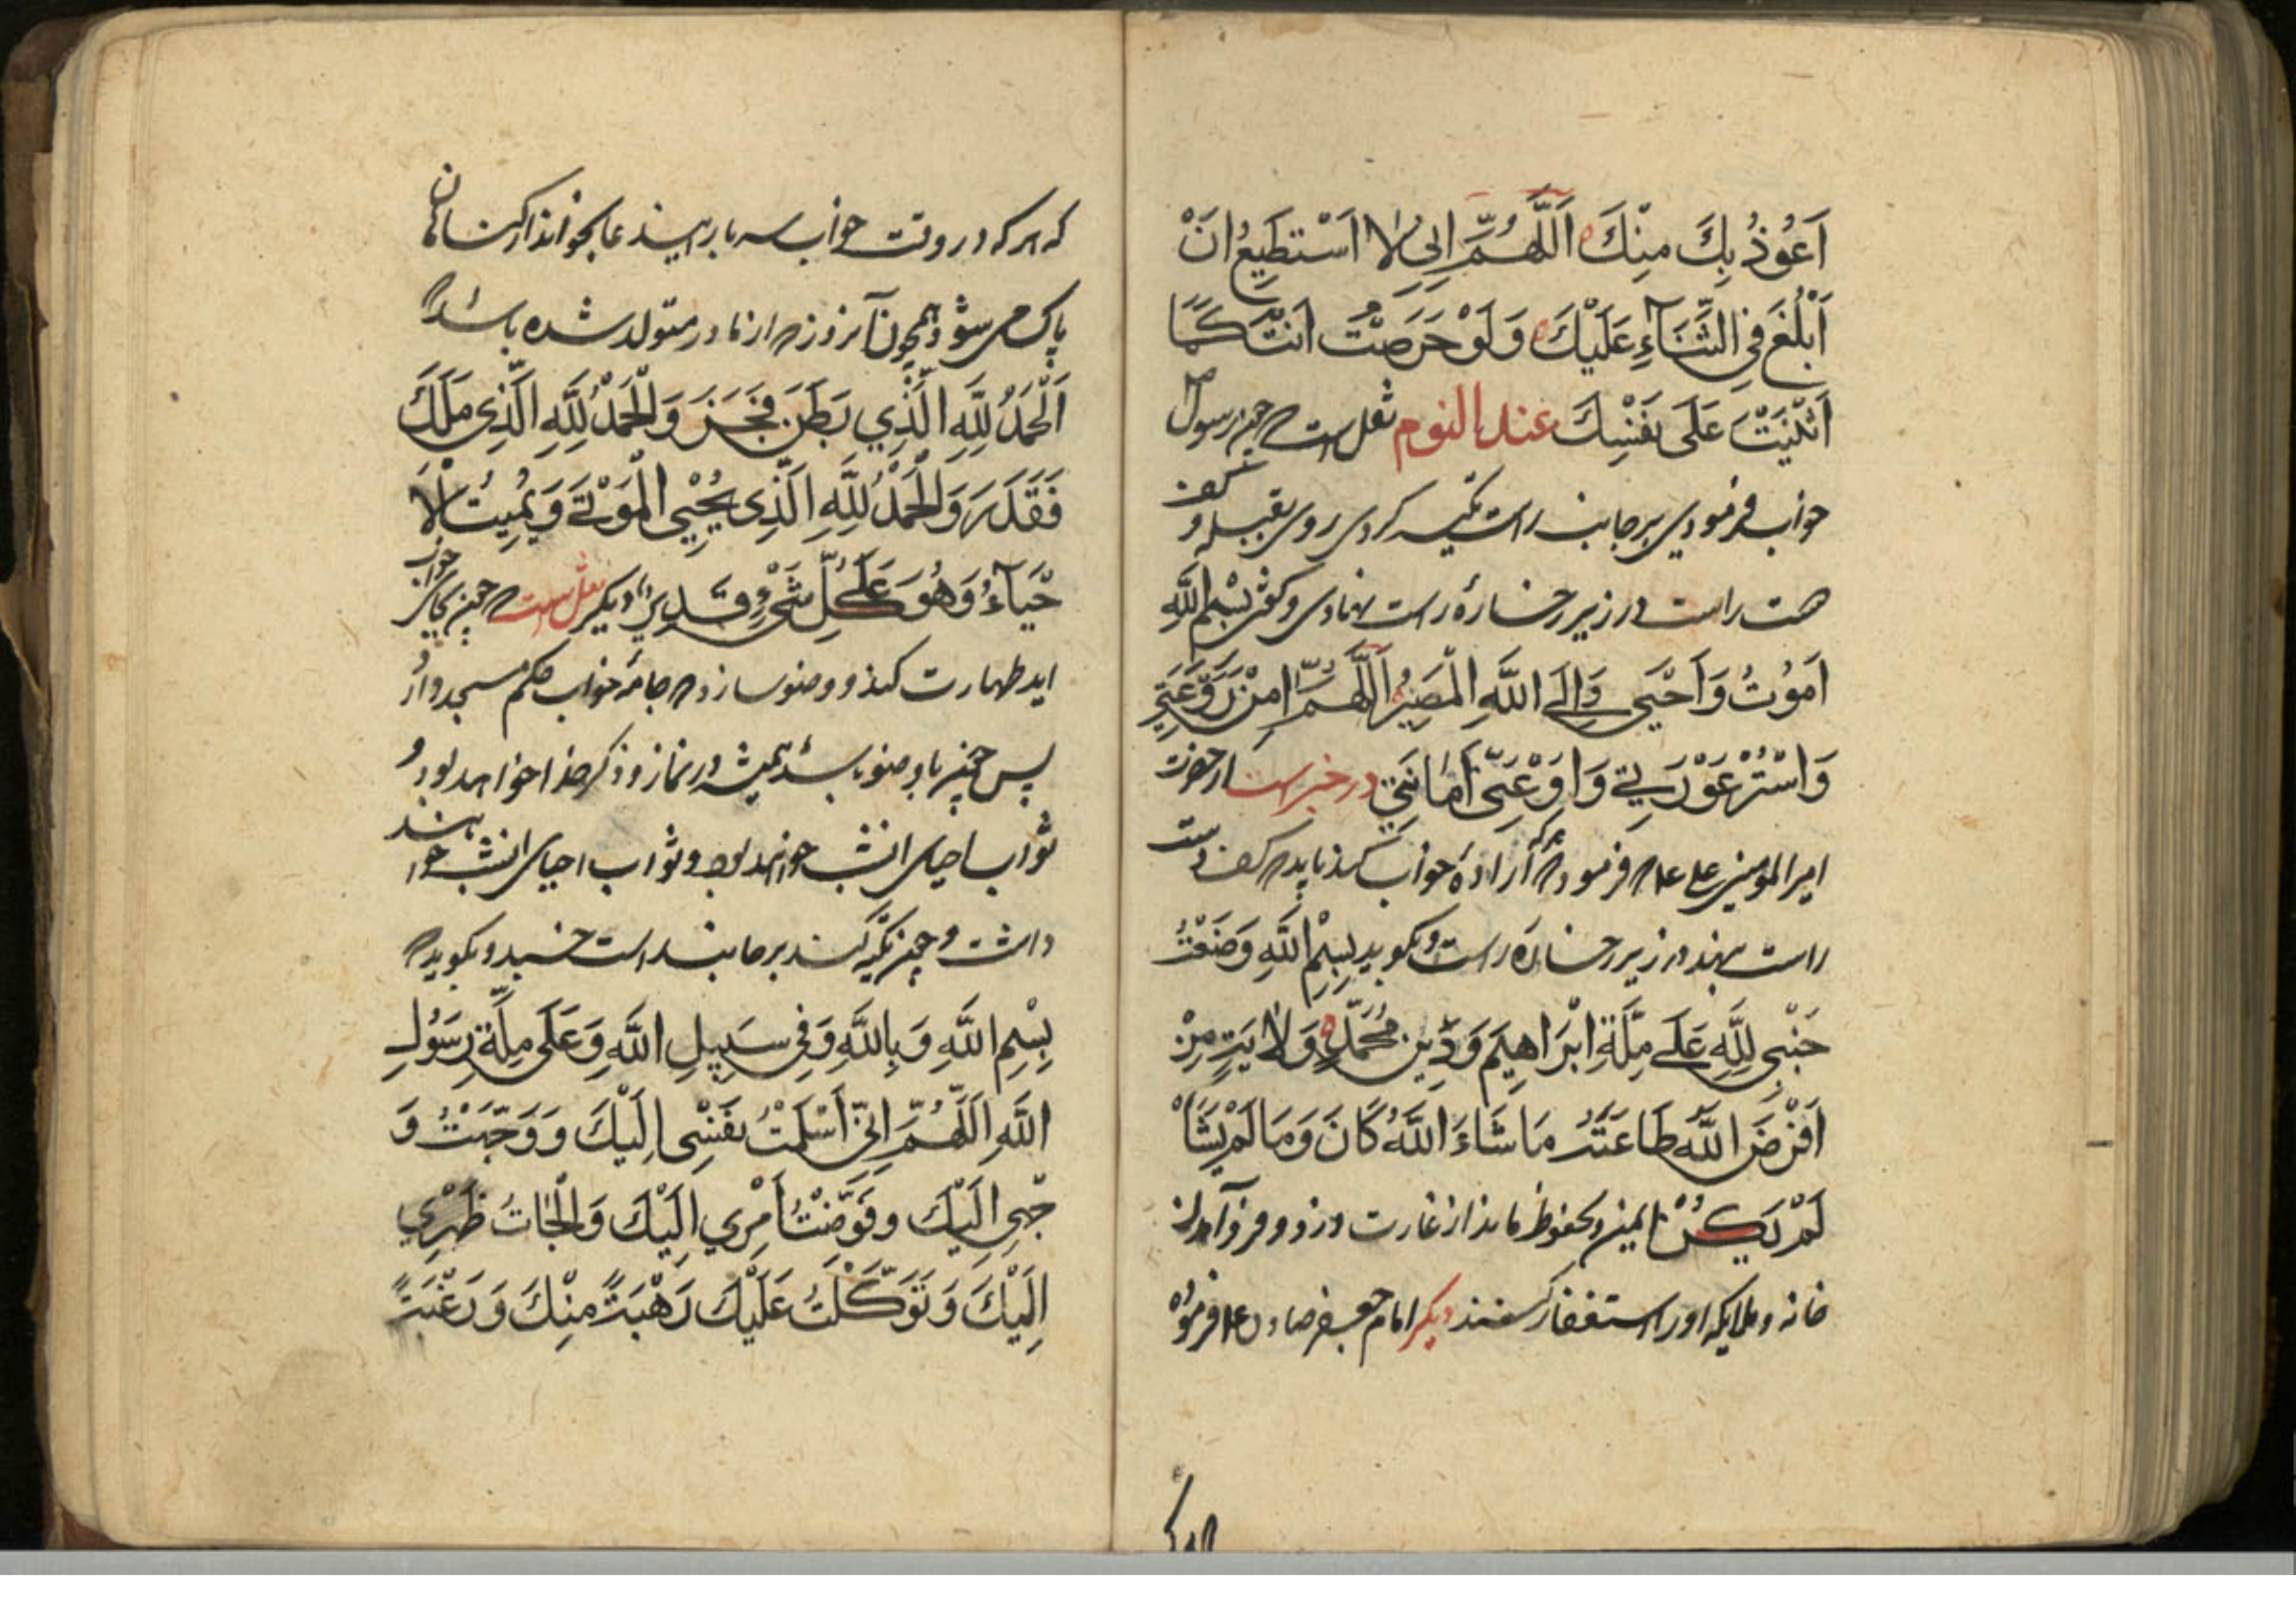 اَعُوْذُ بِكَ مِنْكَ اَللّٰهُمَّ اِنِّي لٰا اَسْتَطِيعُ اَنْ
اَبْلُغَ فِي الثَّنَآءِ عَلَيْكَ وَلَوْ حَرَصْتُ اَنْتَ كَمَا
اَثْنَيْتَ عَلَى نَفْسِكَ عند النوم نقل است که چون رسول صلی
خواب فرمودی بر جانب راست تکیه کردی روی بقبله و کف
دست راست در زیر رخساره راست نهادی و گفتی بِسْمِ اللّٰهِ
اَمُوْتُ وَاَحْيَى وَاِلَى اللّٰهِ الْمَصِيْرُ اَللّٰهُمَّ اٰمِنْ رَوْعَتِي
وَاسْتُرْ عَوْرَتِي وَاَدِّ عَنِّي اَمَانَتِي در خبر است از حضرت
امیر المومنین علی ع م که فرمود هر که اراده خواب کند باید که کف دست
راست بنهد در زیر رخساره راست و بگوید بِسْمِ اللّٰهِ وَضَعْتُ
جَنْبِي لِلّٰهِ عَلَى مِلَّةِ اِبْرَاهِيْمَ وَدِيْنِ مُحَمَّدٍ وَلَايَتِ مَنْ
اَفْرَضَ اللّٰهُ طَاعَتَهُ مَا شَاءَ اللّٰهُ كَانَ وَمَا لَمْ يَشَأْ
لَمْ يَكُنْ ایمن و محفوظ ماند از غارت و دزد و فرود آمدن
خانه و ملایکه او را استغفار کنند دیگر امام جعفر صادق ع م فرموده
که هر که در وقت خواب سه بار این دعا بخواند از گناهان
پاک می شود همچون آن روز که از مادر متولد شده باشد
اَلْحَمْدُ لِلّٰهِ الَّذِي بَطَنَ فَخَبَرَ وَالْحَمْدُ لِلّٰهِ الَّذِي مَلَكَ
فَقَدَرَ وَالْحَمْدُ لِلّٰهِ الَّذِي يُحْيِي الْمَوْتَى وَيُمِيْتُ الْاَ
حْيَآءَ وَهُوَ عَلَى كُلِّ شَيْءٍ قَدِيْرٌ دیگر نقل است که چون بجای خواب
اید طهارت کند و وضو سازد که جامه خواب حکم مسجد دارد
پس چون با وضو باشد همیشه در نماز و ذکر خدا خواهد بود و
ثواب احیای انشب خواهد بود و ثواب احیای انشب خواهند
داشت و چون تکیه کند بر جانب راست خسبد و بگوید که
بِسْمِ اللّٰهِ وَبِاللّٰهِ وَفِي سَبِيْلِ اللّٰهِ وَعَلَى مِلَّةِ رَسُوْلِ
اللّٰهِ اَللّٰهُمَّ اِنِّي اَسْلَمْتُ نَفْسِي اِلَيْكَ وَوَجَّهْتُ وَ
جْهِي اِلَيْكَ وَفَوَّضْتُ اَمْرِي اِلَيْكَ وَالْجَاْتُ ظَهْرِي
اِلَيْكَ وَتَوَكَّلْتُ عَلَيْكَ رَهْبَةً مِنْكَ وَرَغْبَةً